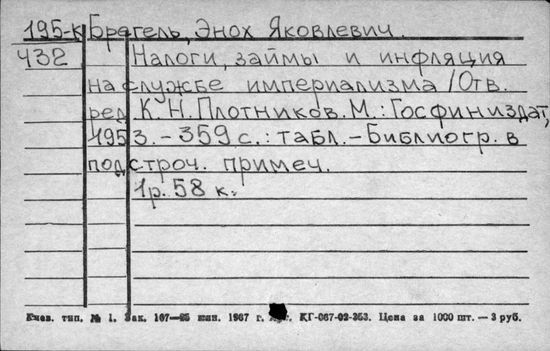 195-к Брегель, Энох Яковлевич.
432 Налоги, займы и инфляция
на службе империализма / Отв.
ред. К. Н. Плотников. М.: Госфиниздат,
1953. - 359 с.: табл. - Библиогр. в
подстроч. примеч.
1р. 58 к.
Киев. тип. № 1. Зак. 167—25 млн. 1967 г. КГ-067-02-253. Цена за 1000 шт. — 3 руб.